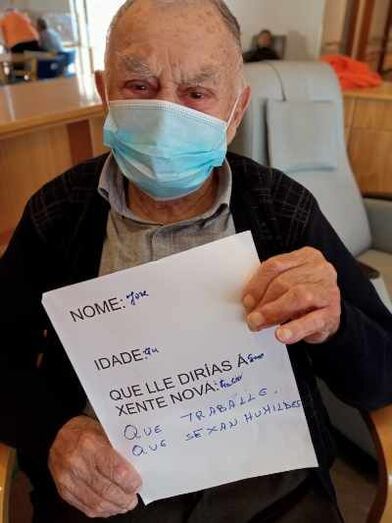 NOME: Jose
IDADE: 94
QUE LLE DIRÍAS Á
XENTE NOVA:
QUE TRABALLE.
QUE SEXAN HUMILDES